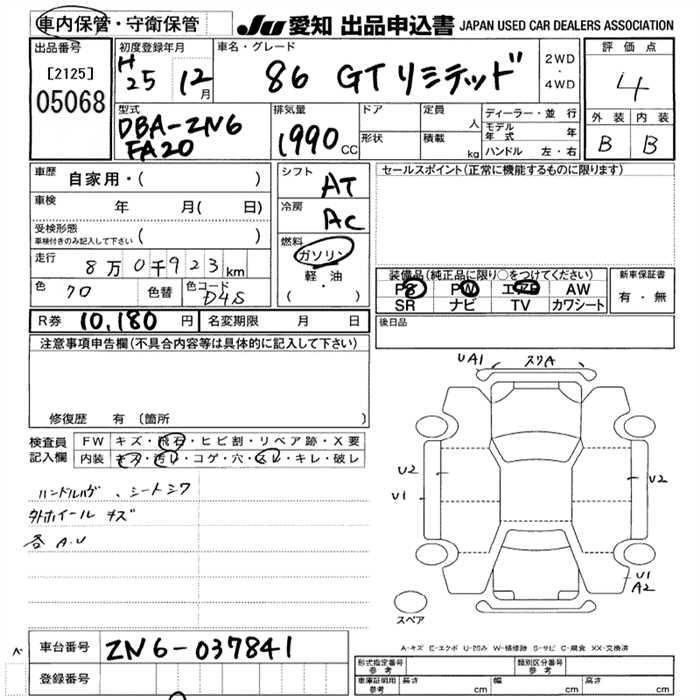 車内保管・守衛保管
JU 愛知 出品申込書 JAPAN USED CAR DEALERS ASSOCIATION
出品番号
[2125]
05068
初度登録年月
H25 12月
車名・グレード
86 GTリミテッド
2WD・4WD
評価点
4
外装 内装
B B
型式
DBA-ZN6
FA20
排気量
1990 CC
ドア
形状
定員 人
積載 kg
ディーラー・並行
モデル年式 年
ハンドル 左・右
車歴 自家用・( )
車検 年 月( 日)
受検形態
車検付きのみ記入して下さい ( )
走行 8万0千923km
色 クロ 色替 色コード D4S
シフト AT
冷房 AC
燃料 ガソリン
軽・油
( ・ )
セールスポイント(正常に機能するものに限ります)
装備品(純正品に限り○をつけてください)
PS PW エアB AW
SR ナビ TV カワシート
新車保証書
有・無
後日品
R券 10,180円 名変期限 月 日
注意事項申告欄(不具合内容等は具体的に記入して下さい)
修復歴 有 [箇所 ]
検査員記入欄
FW キズ・飛石・ヒビ割・リペア跡・X要
内装 キズ・汚レ・コゲ・穴・スレ・キレ・破レ
ハンドルハゲ、シートシワ
外ホイールキズ
各A.U
UA1 スリA
U2
U1
U2
U1
A2
スペア
A-キズ E-エクボ U-凹み W-補修跡 S-サビ C-腐食 XX-交換済
車台番号 ZN6-037841
登録番号
形式指定番号 参考
類別区分番号 参考
車庫証明用 参考 長さ cm 幅 cm 高さ cm